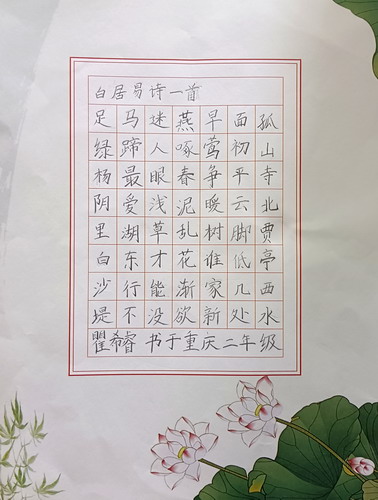 白居易诗一首
孤山寺北贾亭西水
面初平云脚低几处
早莺争暖树谁家新
燕啄春泥乱花渐欲
迷人眼浅草才能没
马蹄最爱湖东行不
足绿杨阴里白沙堤
瞿希睿 书于重庆二年级